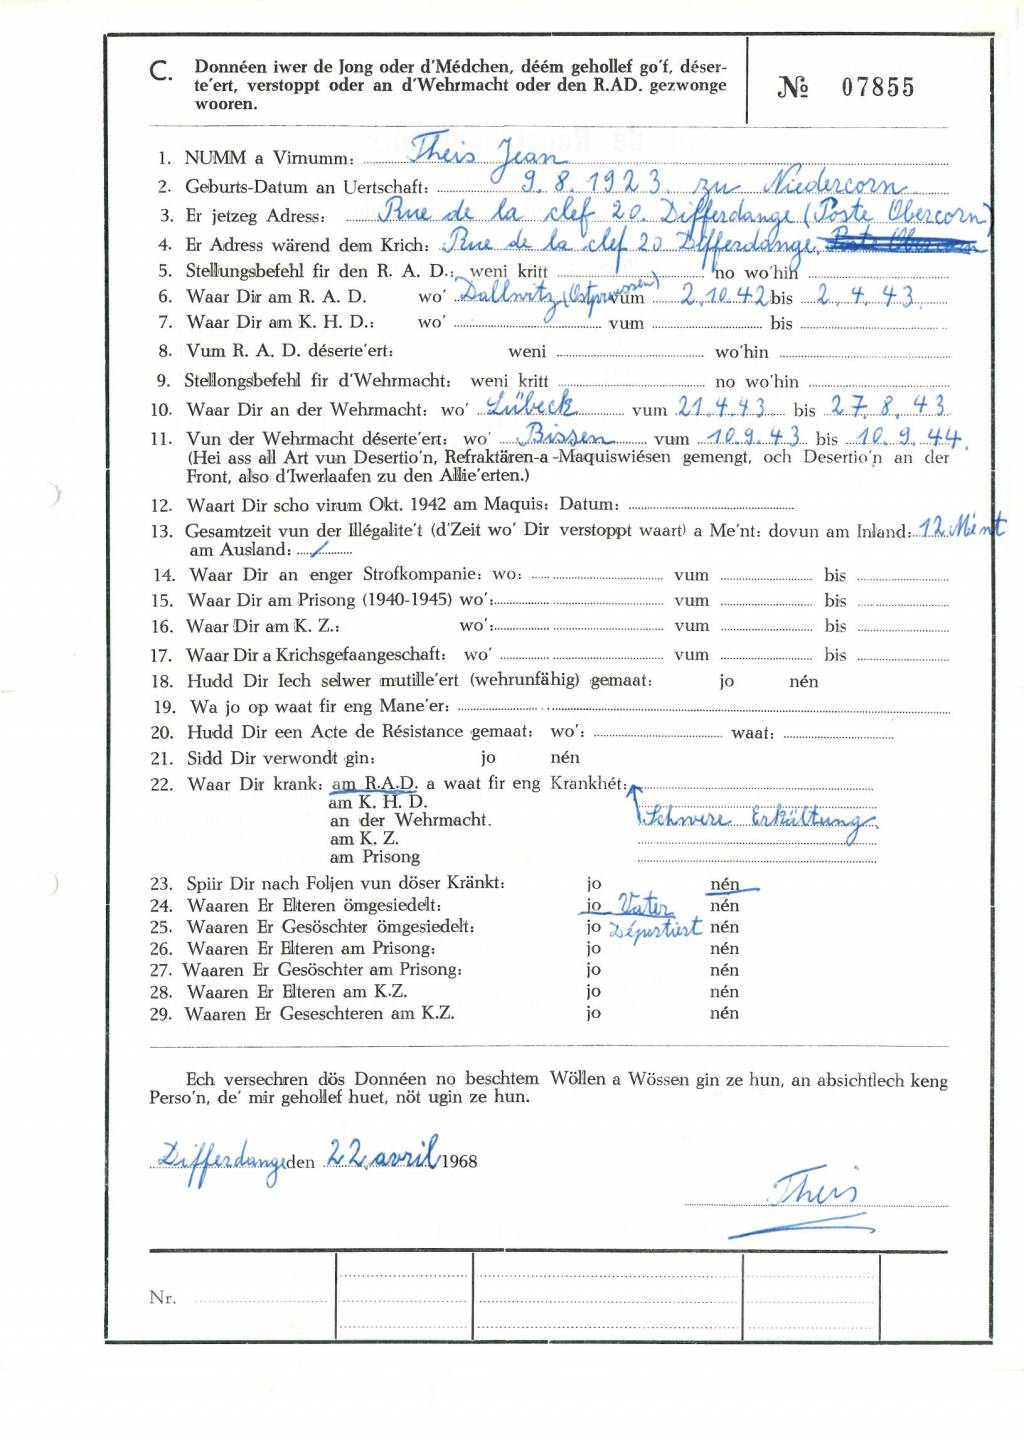 C. Donnéen iwer de Jong oder d'Médchen, déém gehollef go'f, déser-
te'ert, verstoppt oder an d'Wehrmacht oder den R.AD. gezwonge
wooren.
№ 07855
1. NUMM a Virnumm: Theis Jean
2. Geburts-Datum an Uertschaft: 9.8.1923 zu Niedercorn
3. Er jetzeg Adress: Rue de la clef 20. Differdange (Poste Obercorn)
4. Er Adress wärend dem Krich: Rue de la clef 20 Differdange,
5. Stellungsbefehl fir den R. A. D.: weni kritt no wo'hin
6. Waar Dir am R. A. D. wo' Dallwitz (Ostpreussen) vum 2.10.42 bis 2.4.43.
7. Waar Dir am K. H. D.: wo' vum bis
8. Vum R. A. D. déserte'ert: weni wo'hin
9. Stellongsbefehl fir d'Wehrmacht: weni kritt no wo'hin
10. Waar Dir an der Wehrmacht: wo' Lübeck vum 21.4.43 bis 27.8.43
11. Vun der Wehrmacht déserte'ert: wo' Bissen vum 10.9.43 bis 10.9.44.
(Hei ass all Art vun Desertio'n, Refraktären-a-Maquiswiésen gemengt, och Desertio'n an der
Front, also d'Iwerlaafen zu den Allie'erten.)
12. Waart Dir scho virum Okt. 1942 am Maquis: Datum:
13. Gesamtzeit vun der Illégalite't (d'Zeit wo' Dir verstoppt waart) a Me'nt: dovun am Inland: 12 Mént
am Ausland: /
14. Waar Dir an enger Strofkompanie: wo: vum bis
15. Waar Dir am Prisong (1940-1945) wo': vum bis
16. Waar Dir am K. Z.: wo': vum bis
17. Waar Dir a Krichsgefaangeschaft: wo' vum bis
18. Hudd Dir Iech selwer mutille'ert (wehrunfähig) gemaat: jo nén
19. Wa jo op waat fir eng Mane'er:
20. Hudd Dir een Acte de Résistance gemaat: wo': waat:
21. Sidd Dir verwondt gin: jo nén
22. Waar Dir krank: am R.A.D. a waat fir eng Krankhét:
am K. H. D.
an der Wehrmacht. Schwere Erkältung
am K. Z.
am Prisong
23. Spiir Dir nach Foljen vun döser Kränkt: jo nén
24. Waaren Er Elteren ömgesiedelt: jo Vater nén
25. Waaren Er Gesöschter ömgesiedelt: jo Déportiert nén
26. Waaren Er Elteren am Prisong: jo nén
27. Waaren Er Gesöschter am Prisong: jo nén
28. Waaren Er Elteren am K.Z. jo nén
29. Waaren Er Geseschteren am K.Z. jo nén
Ech versechren dös Donnéen no beschtem Wöllen a Wössen gin ze hun, an absichtlech keng
Perso'n, de' mir gehollef huet, nöt ugin ze hun.
Differdange den 22 avril 1968
Theis
Nr.